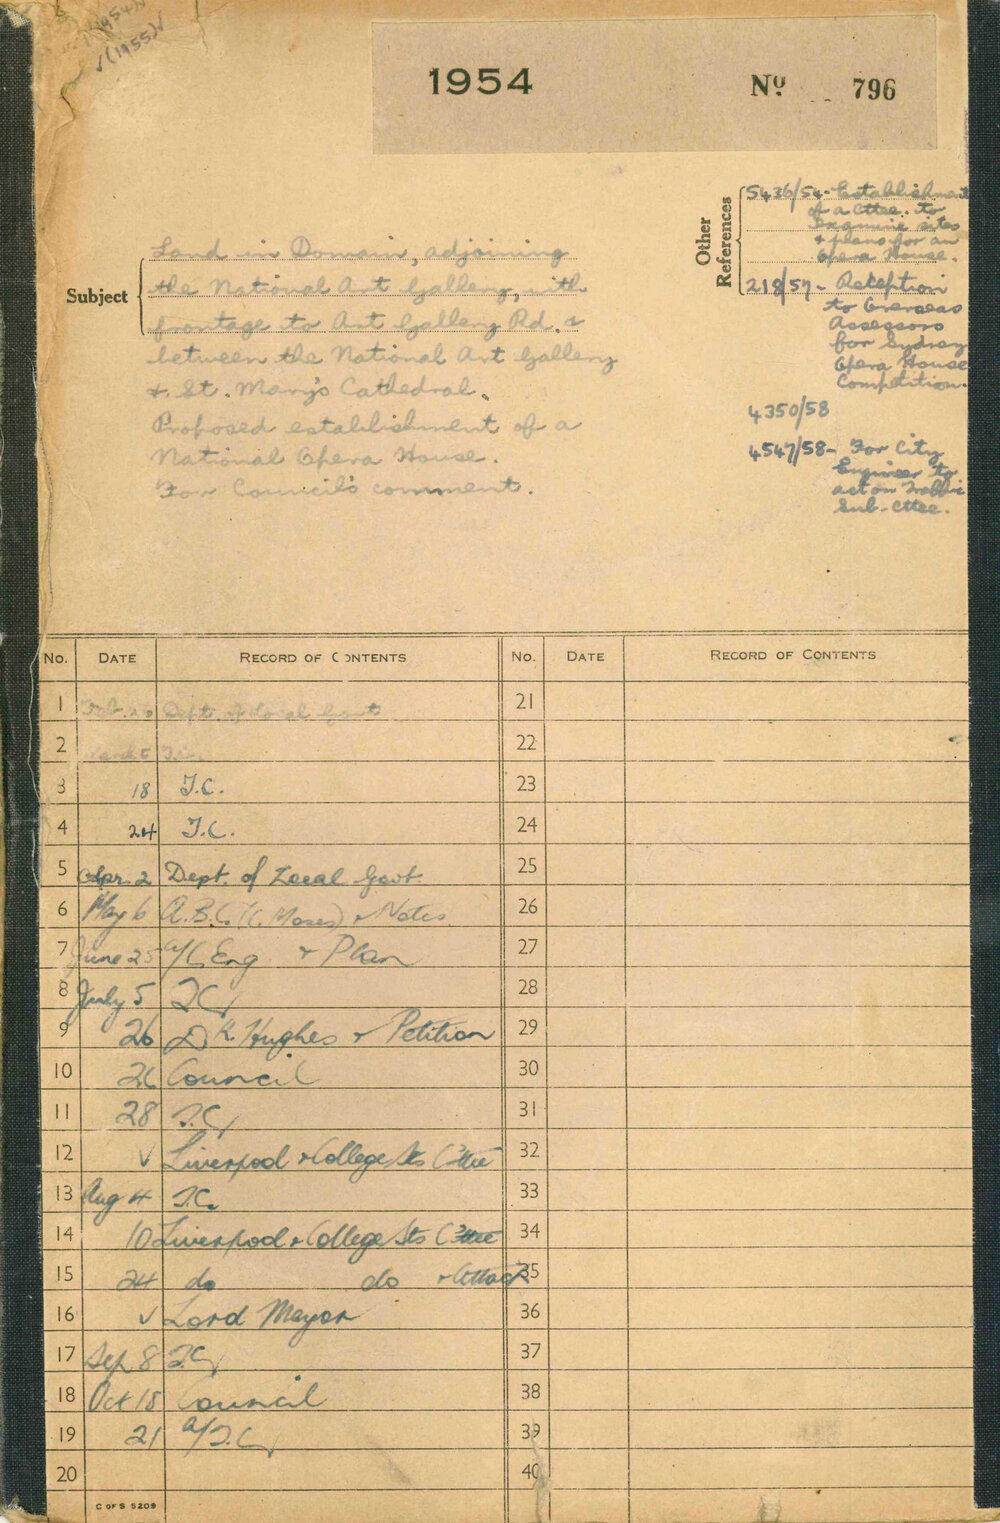 (1954)✓
✓(1955)✓
1954
Nº 796
Other References
5436/54 - Establishment
of a Cttee. to
examine sites
& plans for an
Opera House.
218/57 - Reception
to Overseas
Assessors
for Sydney
Opera House
Competition.
4350/58
4547/58 - For City
Engineer to
act on Traffic
Sub-Cttee.
Subject
Land in Domain, adjoining
the National Art Gallery, with
frontage to Art Gallery Rd. &
between the National Art Gallery
& St. Mary's Cathedral.
Proposed establishment of a
National Opera House.
For Council's comment.
No. DATE RECORD OF CONTENTS No. DATE RECORD OF CONTENTS
1 Feb. Dept. of Local Govt 21
2 T.C. 22
3 18 T.C. 23
4 24 T.C. 24
5 Apr. 2 Dept. of Local Govt. 25
6 May 6 A.B.C. (C. Moses) & Notes 26
7 June 25 a/C Eng. & Plan 27
8 July 5 TC 28
9 26 D K Hughes & Petition 29
10 26 Council 30
11 28 T.C. 31
12 ✓ Liverpool & College Sts C'ttee 32
13 Aug 4 T.C. 33
14 10 Liverpool & College Sts C'ttee 34
15 24 do do & Attach 35
16 ✓ Lord Mayor 36
17 Sep 8 T.C. 37
18 Oct 18 Council 38
19 21 a/T.C. 39
20 40
C OF S 5209